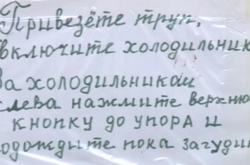 Привезёте труп,
включите холодильник
За холодильником
слева нажмите верхнюю
кнопку до упора и
подождите пока загудит